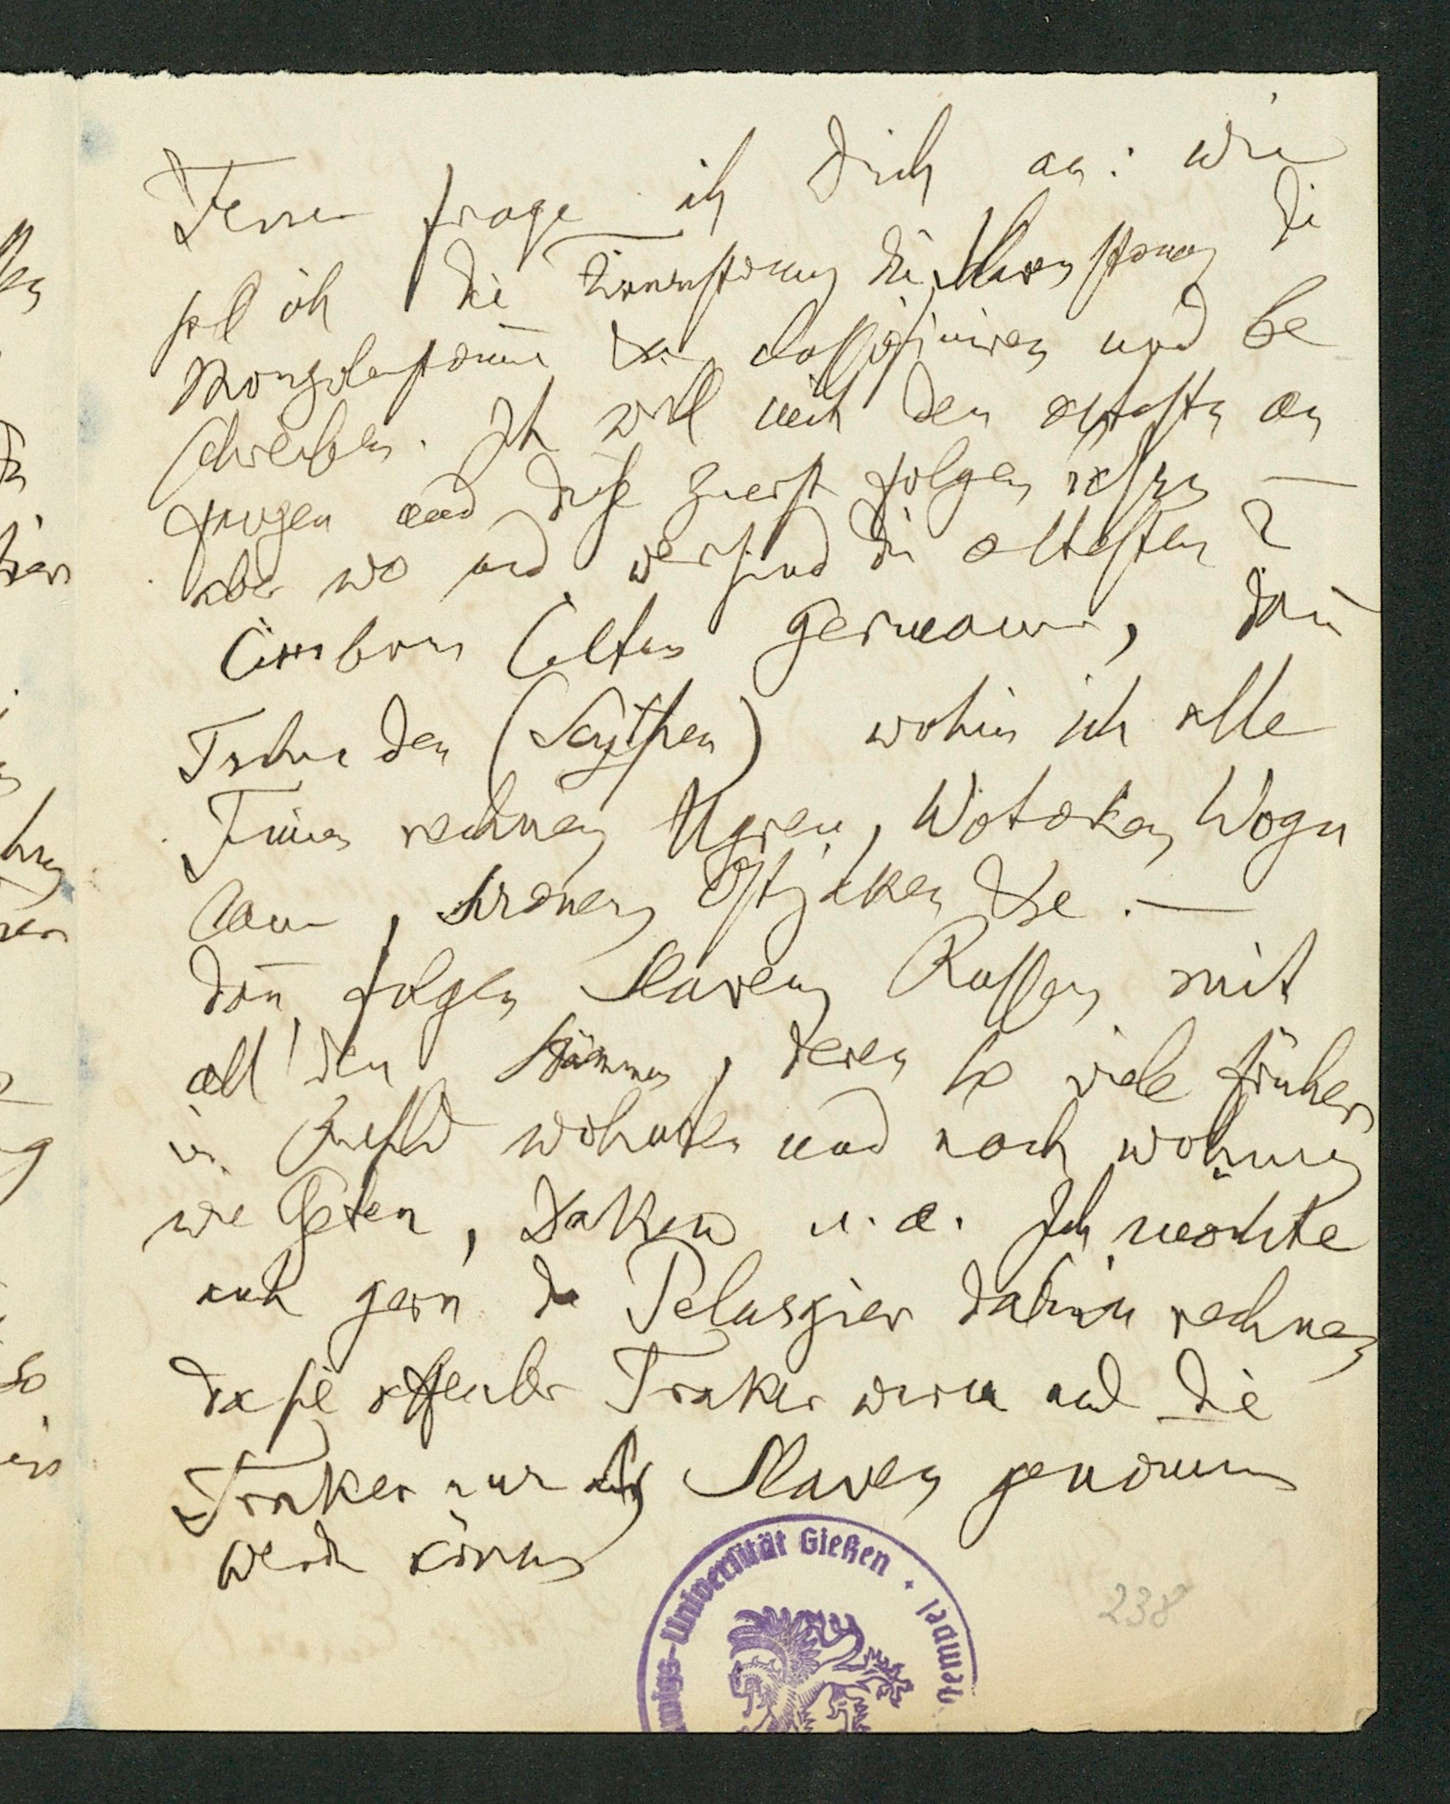 Ferner frage ich Dich an: wie
soll ich die Finnenstämme die Slavenstämme die
Mongolenstämme &c classificiren und be
schreiben. Ich will mit den ältesten an
fangen und diese zuerst folgen lassen —
aber wo und wer sind die ältesten?
Cimbern Celten Germanen, dan̄
Tschuden (Scythen) wohin ich alle
Finnen rechne, Ugren, Wotaken, Wogu
len, Siränen, Ostjaken &c. —
dan̄ folgen Slaven, Russen, mit
all' den Stämmen, deren so viele früher
in Russld wohnten und noch wohnen,
wie Geten, Daken u. a. Ich möchte
auch gern die Pelasgier dahin rechnen
da sie offenbar Traker waren und die
Traker nur als Slaven genommen
werden können
Ludwigs-Universität Gießen
238